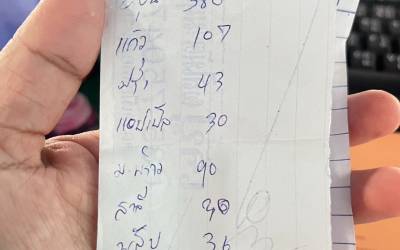 380
แก้ว 107
ฝรั่ง 43
แอปเปิ้ล 30
ม.พร้าว 90
สาลี่
พลับ 36